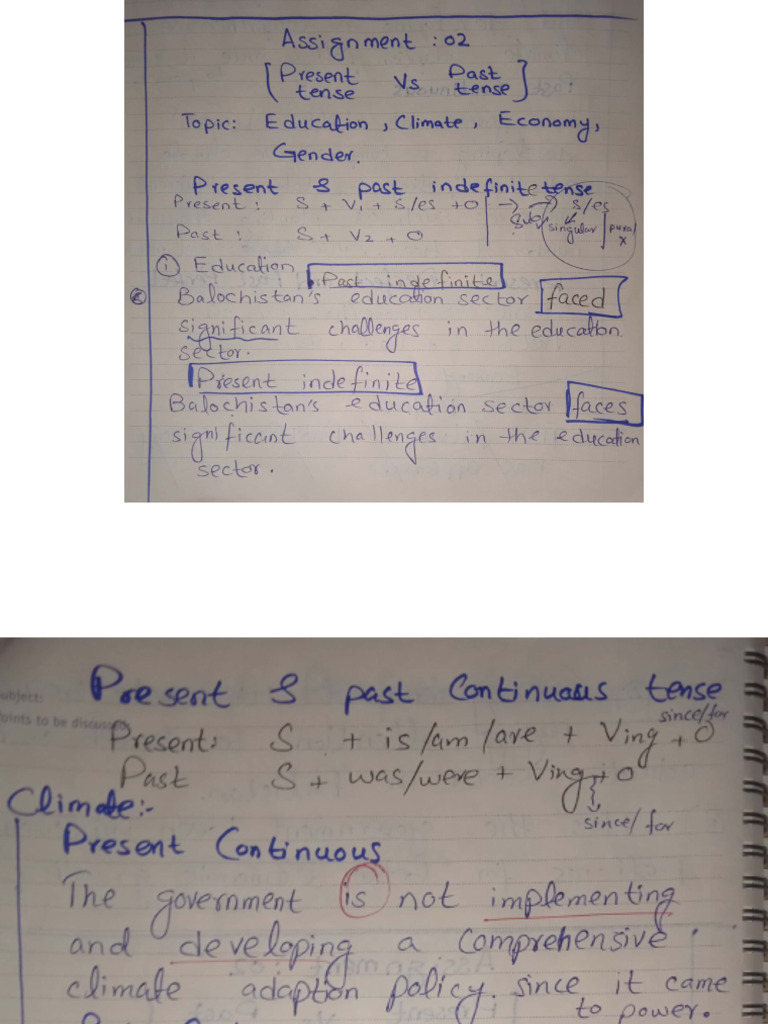 Assignment : 02
[Present tense Vs Past tense]
Topic: Education, Climate, Economy,
Gender.
Present & past indefinite tense
Present: S + V1 + s/es + O → s/es
Past : S + V2 + O singular
① Education
Past indefinite
Balochistan's education sector faced
significant challenges in the education
sector.
Present indefinite
Balochistan's education sector faces
significant challenges in the education
sector.
Present & past Continuous tense
ubject:
oints to be discuss
since/for
Present: S + is/am/are + Ving + O
Past S + was/were + Ving + O
since/for
Climate:-
Present Continuous
The government is not implementing
and developing a comprehensive
climate adaption policy. since it came
to power.